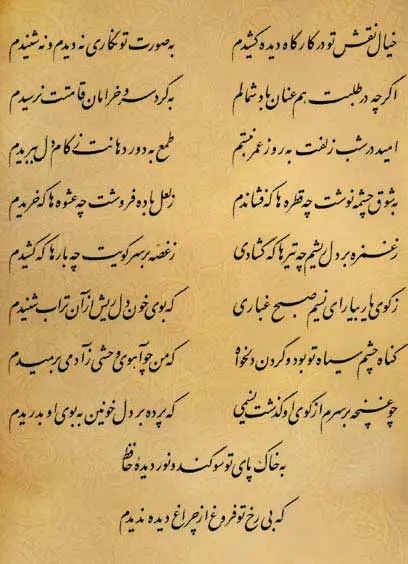 خیال نقش تو در کارگاه دیده کشیدم به صورت تو نگاری نه دیدم و نه شنیدم
اگرچه در طلبت هم عنان باد شمالم به گرد سرو خرامان قامتت نرسیدم
امید در شب زلفت به روز عمر نبستم طمع به دور دهانت ز کام دل ببریدم
به شوق چشمه نوشت چه قطره ها که فشاندم ز لعل باده فروشت چه عشوه ها که خریدم
ز غمزه بر دل ریشم چه تیرها که گشادی ز غصّه بر سر کویت چه بارها که کشیدم
ز کوی یار بیار ای نسیم صبح غباری که بوی خون دل ریش از آن تراب شنیدم
گناه چشم سیاه تو بود و گردن دلخواه که من چو آهوی وحشی ز آدمی برمیدم
چو غنچه بر سرم از کوی او گذشت نسیمی که پرده بر دل خونین به بوی او بدریدم
به خاک پای تو سوگند و نور دیدهٔ حافظ
که بی رخ تو فروغ از چراغ دیده ندیدم